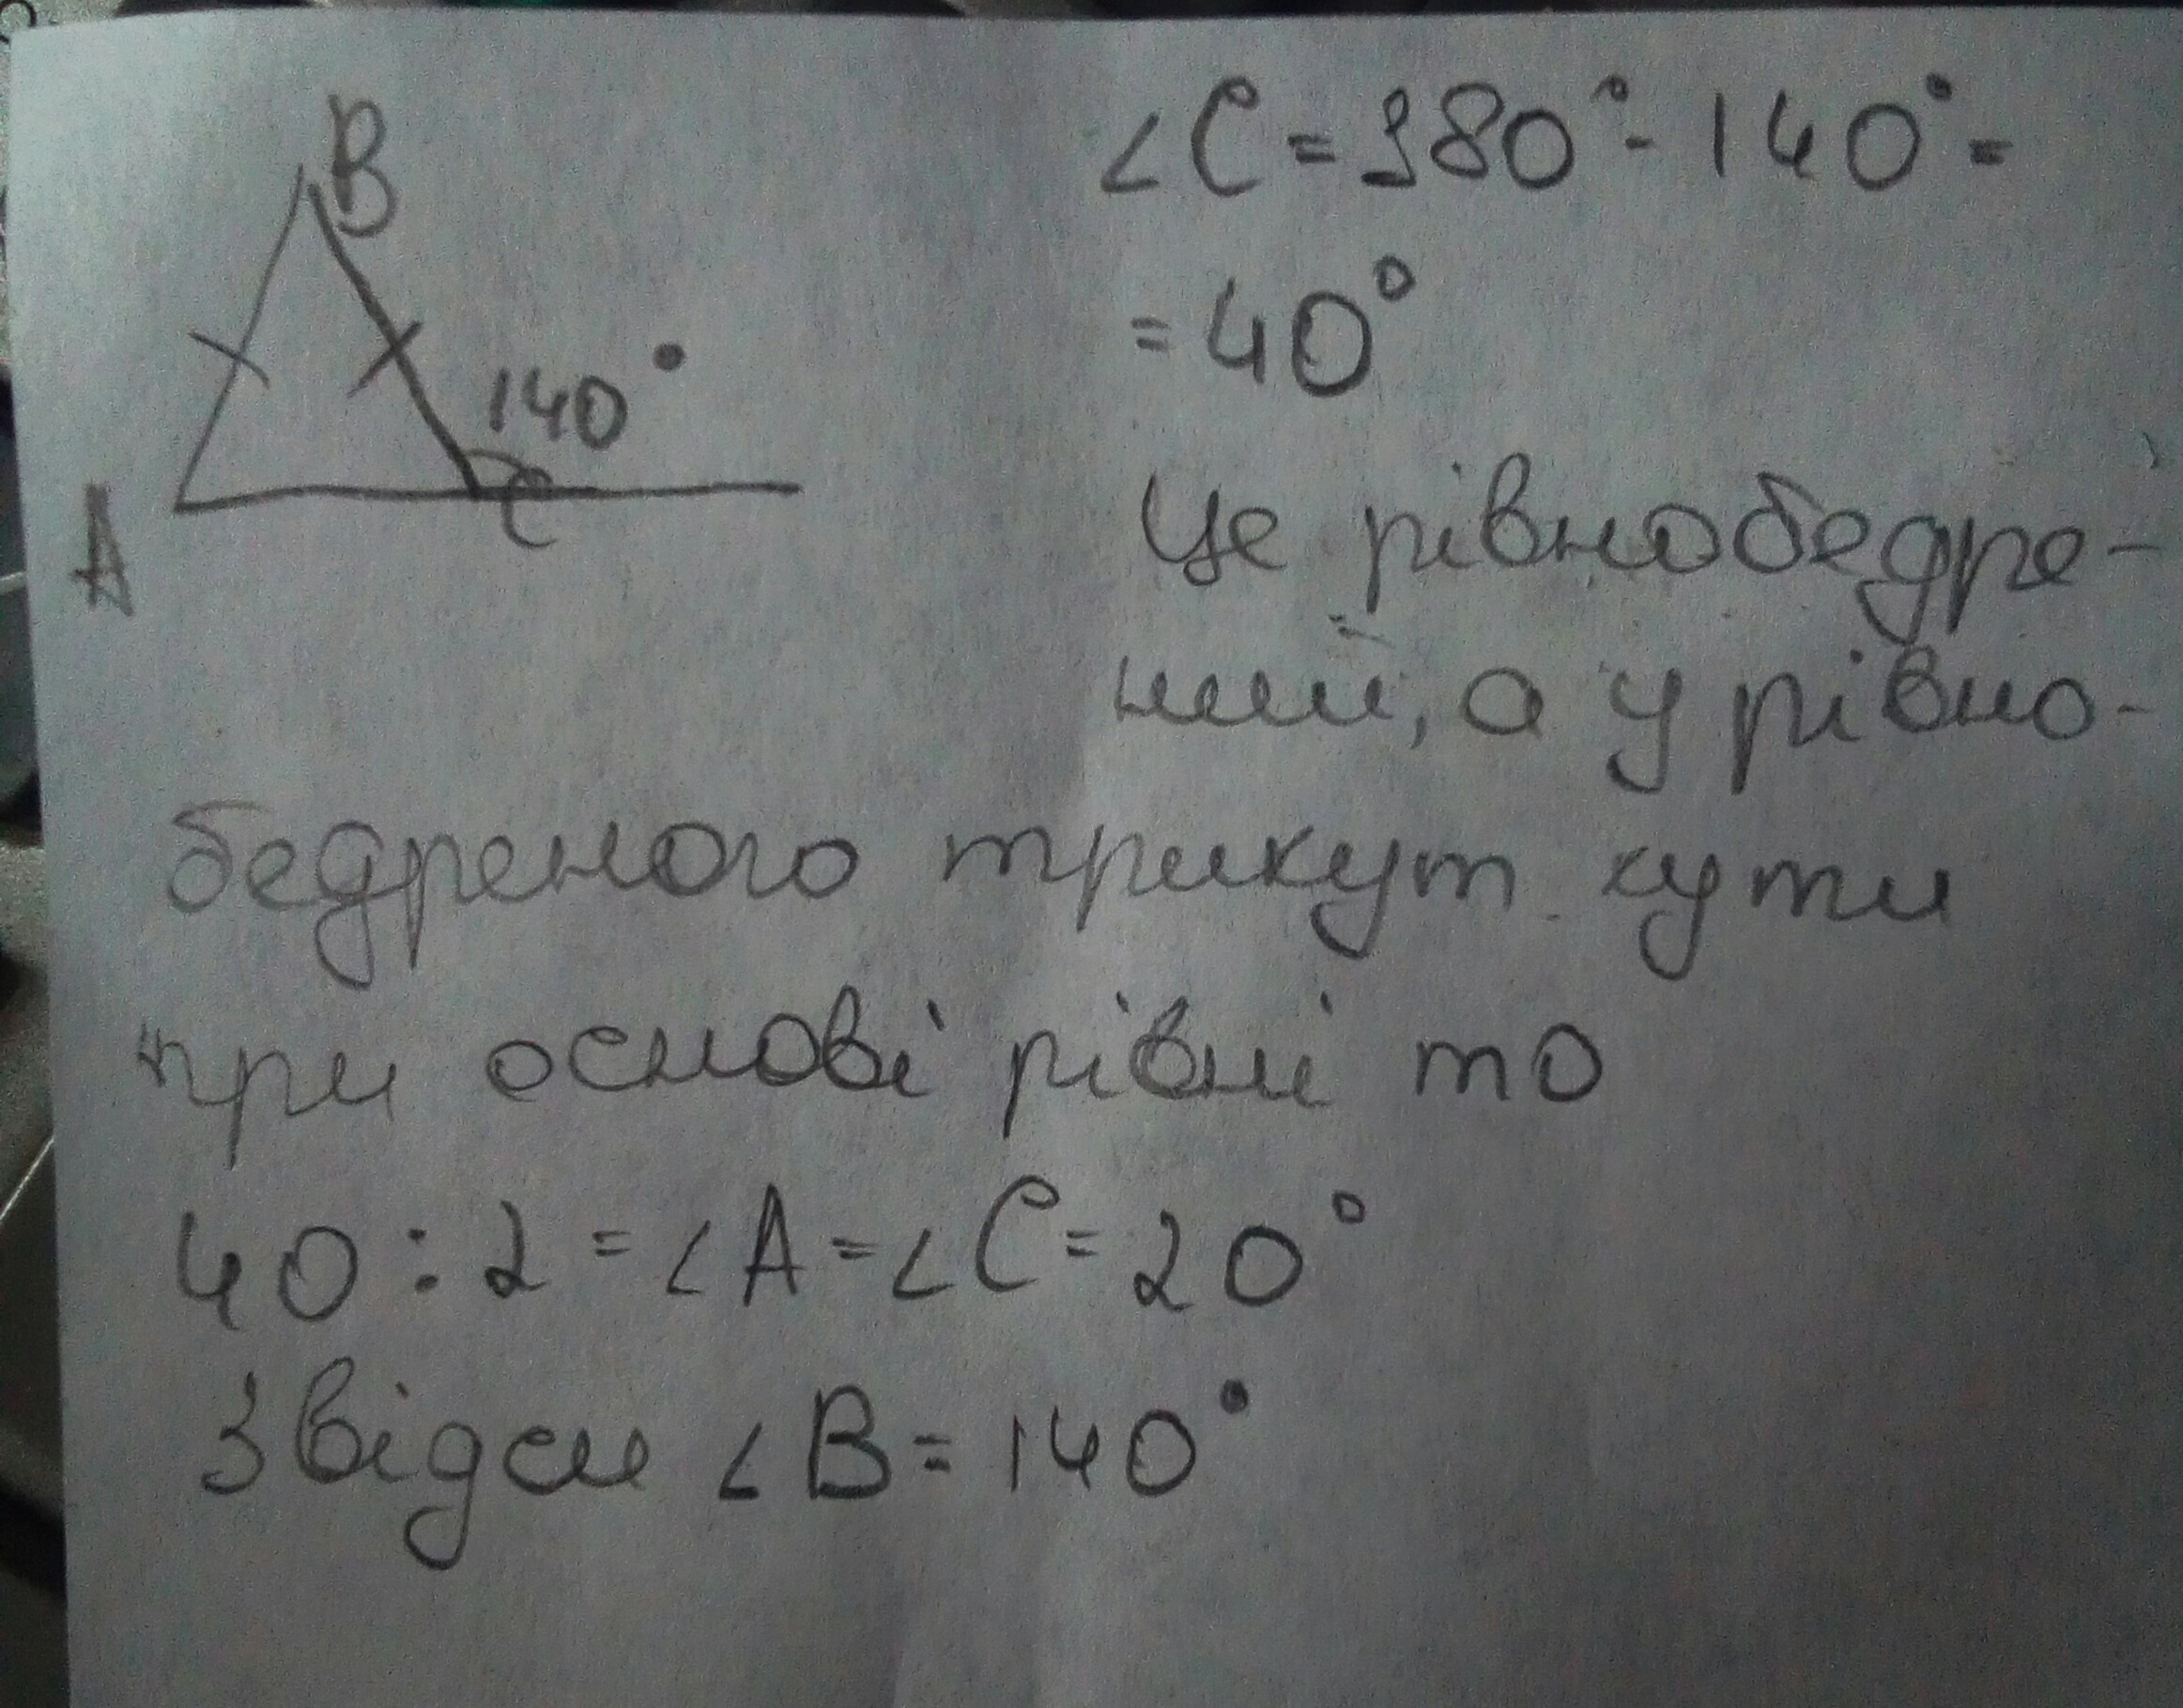 B
140°
C
A
∠C = 180° - 140° =
= 40°
Це рівнобедре-
ний, а у рівно-
бедреного трикут. кути
при основі рівні то
40 : 2 = ∠A = ∠C = 20°
Звідси ∠B = 140°